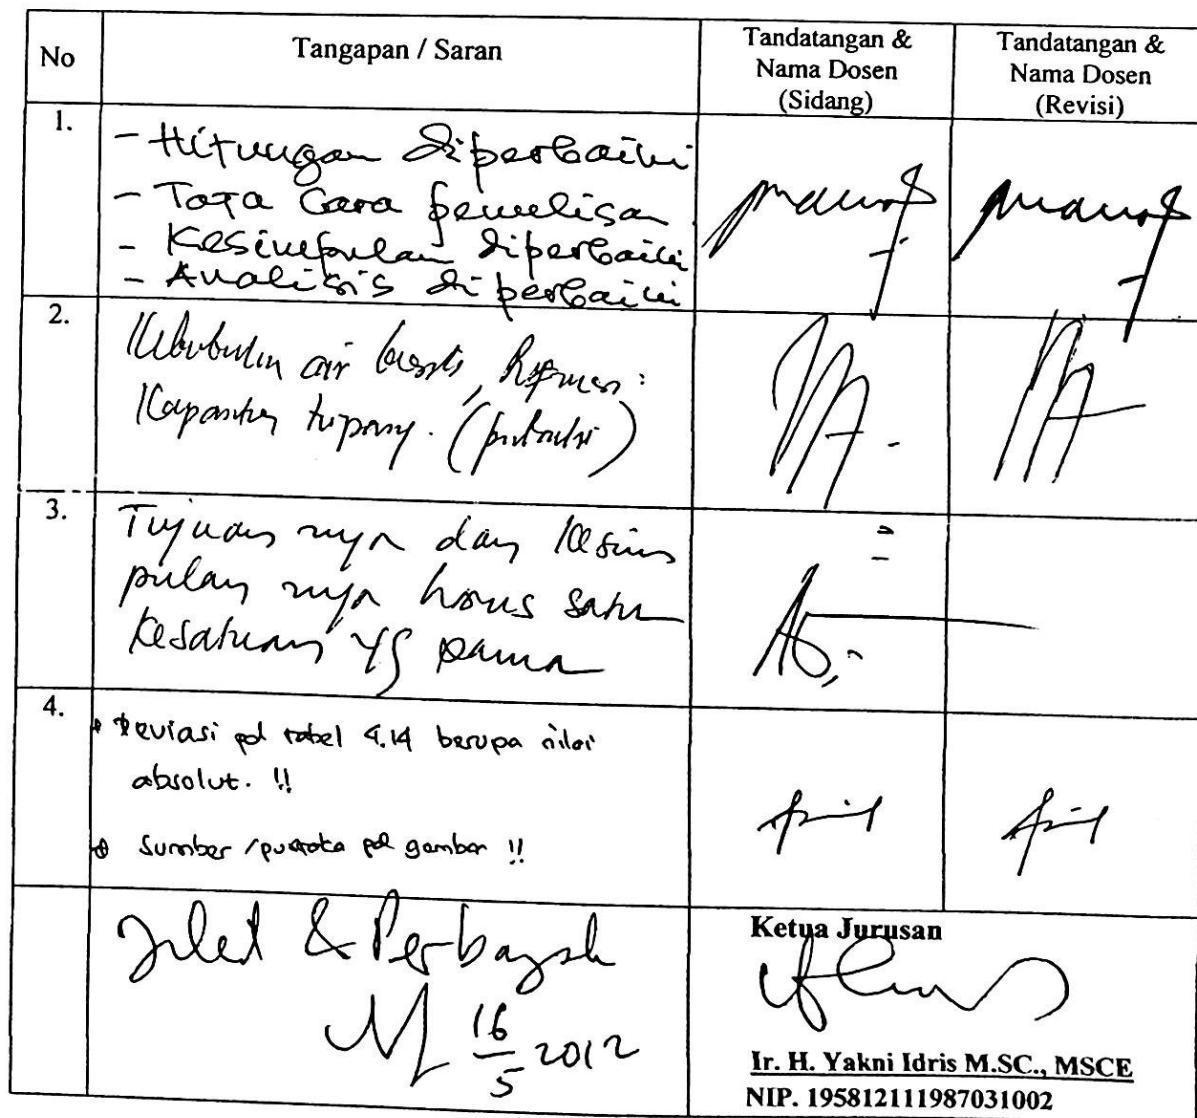 No
Tangapan / Saran
Tandatangan &
Nama Dosen
(Sidang)
Tandatangan &
Nama Dosen
(Revisi)
1.
- Hitungan diperbaiki
- Tata Cara penulisan
- Kesimpulan diperbaiki
- Analisis diperbaiki
2.
Kebutuhan air bersih,
Kapasitas
3.
Tujuan nya dan Kesim
pulan nya harus satu
Kesatuan yg sama
4.
Deviasi pd tabel 4.14 berupa nilai
absolut. !!
Sumber / pustaka pd gambar !!
Jilid & Perbanyak
16/5 2012
Ketua Jurusan
Ir. H. Yakni Idris M.SC., MSCE
NIP. 195812111987031002